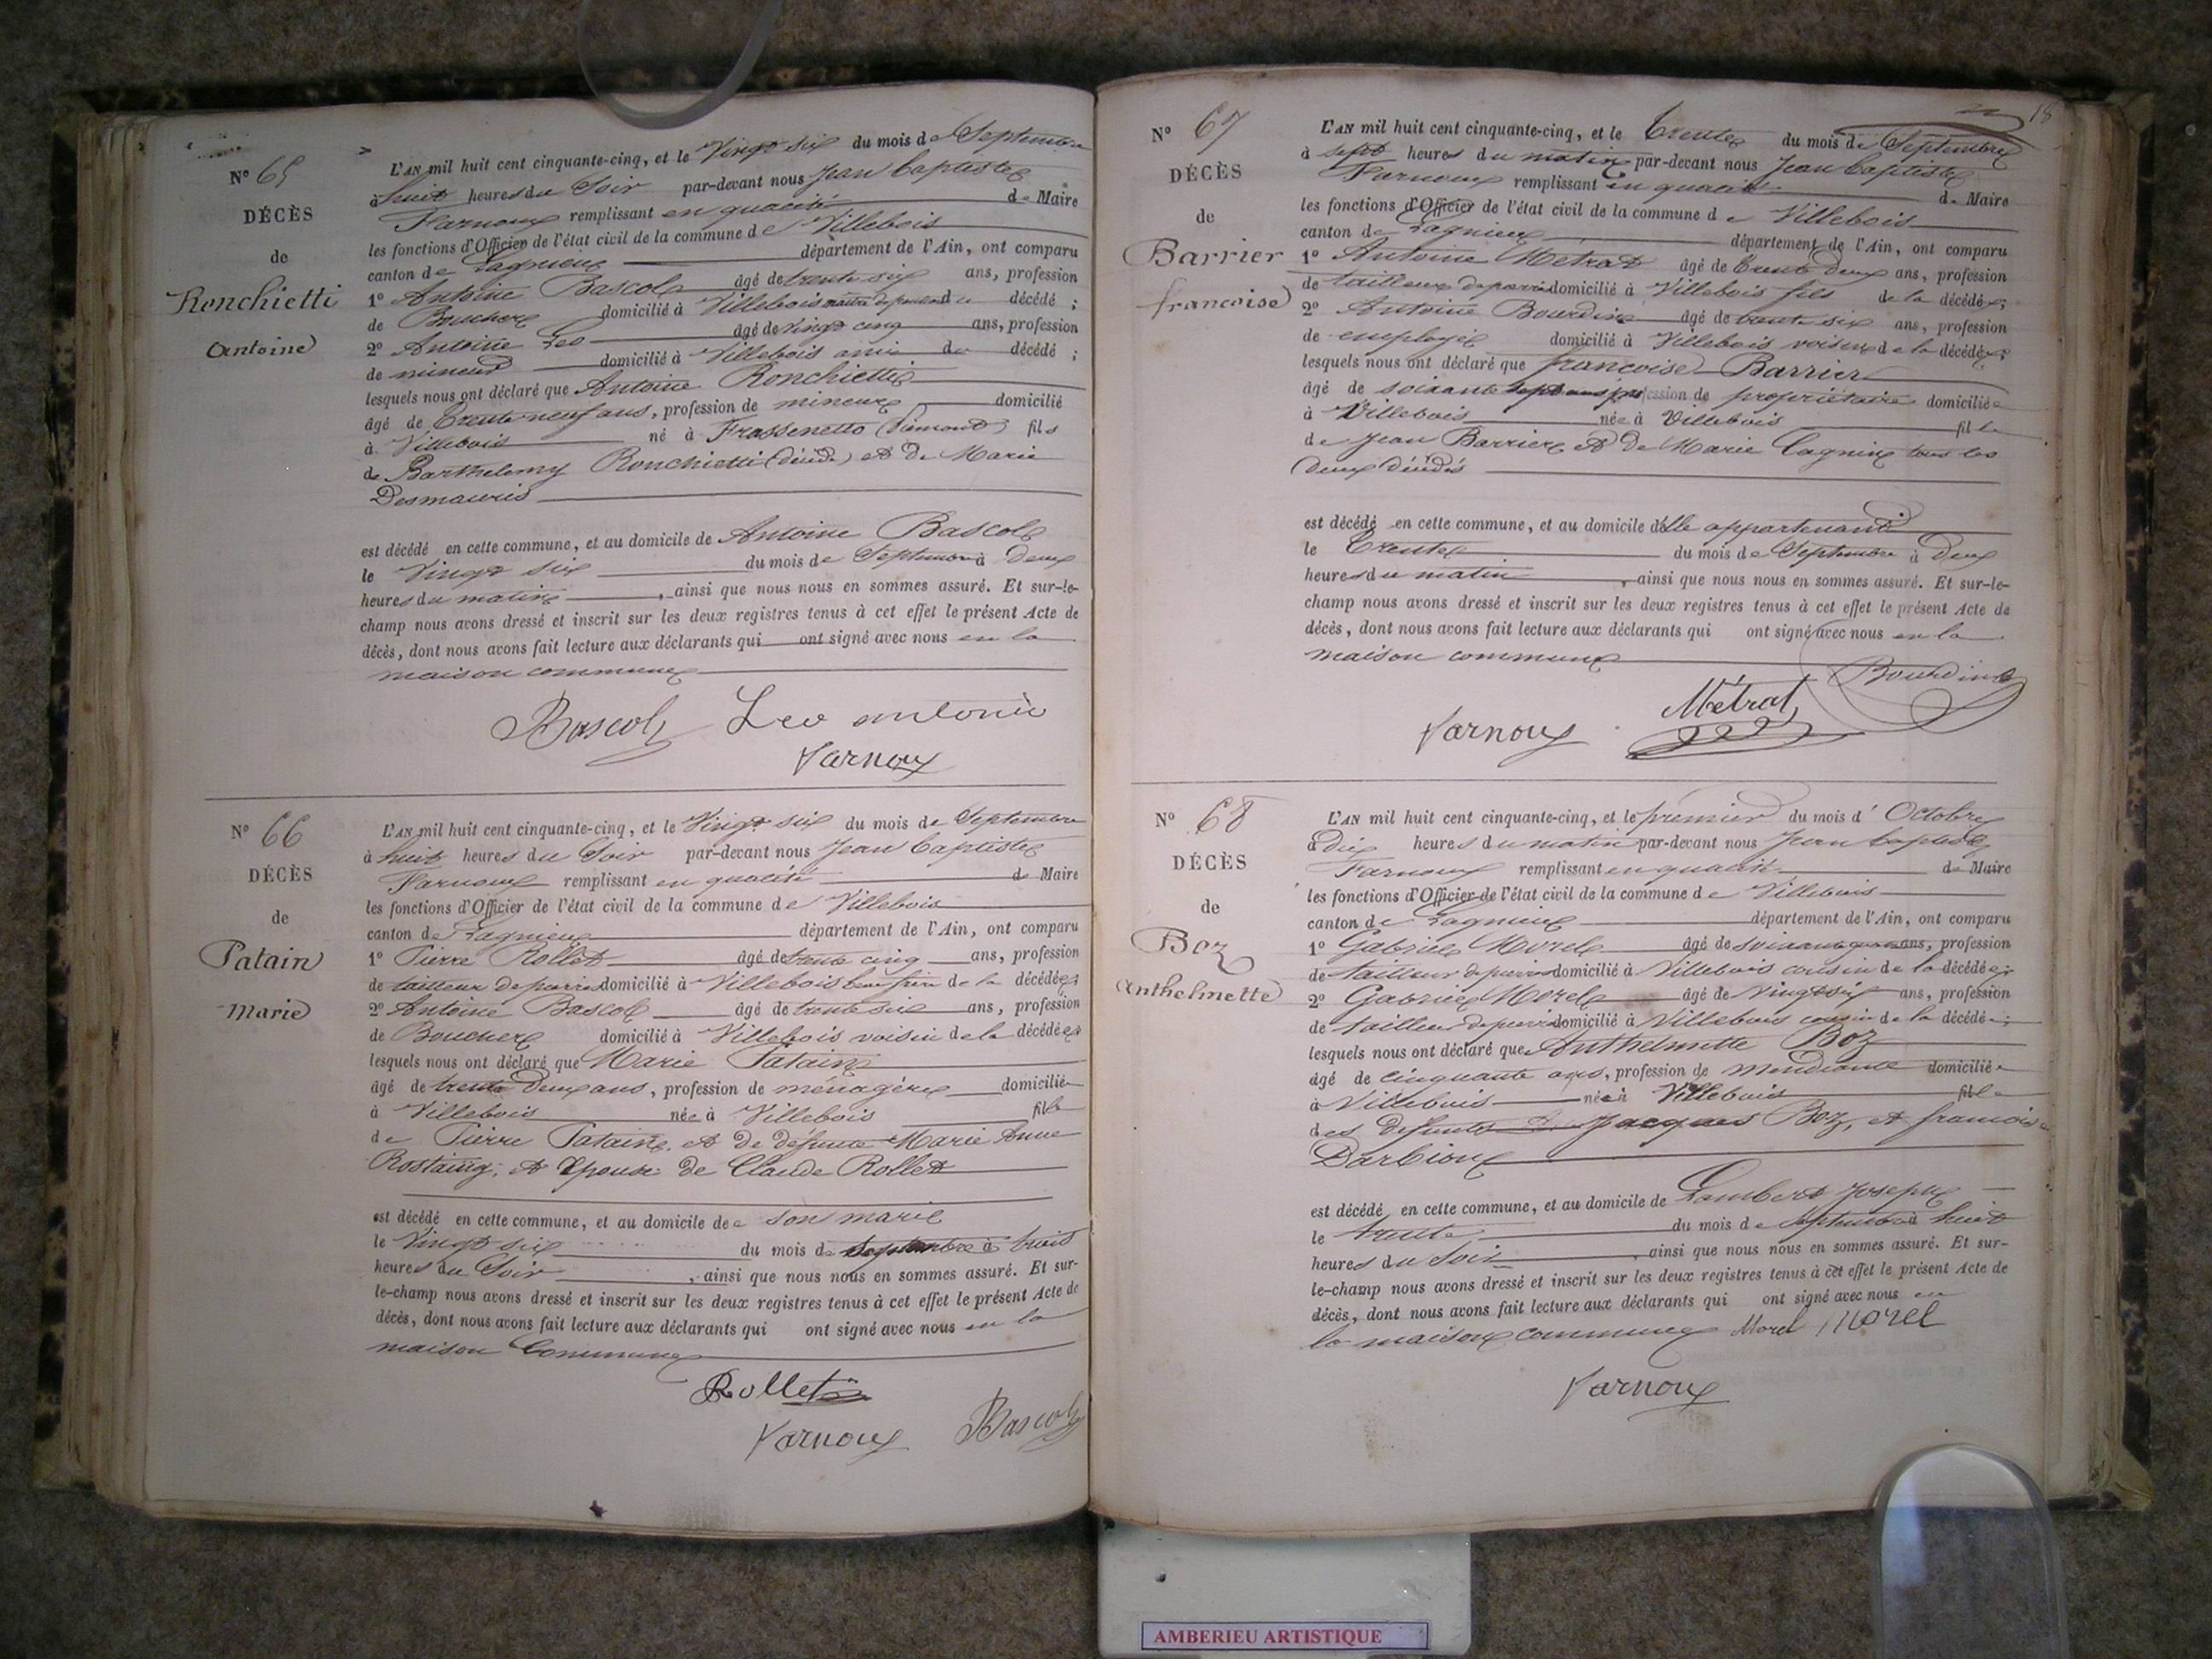 Nº 65
DÉCÈS
de
Ronchietti
Antoine
L'AN mil huit cent cinquante-cinq, et le Vingt six du mois de Septembre
à huit heures du Soir par-devant nous Jean Baptiste
Varnoux remplissant en qualité de Maire
les fonctions d'Officier de l'état civil de la commune de Villebois
canton de Lagnieux département de l'Ain, ont comparu
1º Antoine Bascol âgé de trente six ans, profession
de Boucher domicilié à Villebois maître de pension du décédé ;
2º Antoine Leo âgé de vingt cinq ans, profession
de mineur domicilié à Villebois ami du décédé ;
lesquels nous ont déclaré que Antoine Ronchietti
âgé de trente neuf ans, profession de mineur domicilié
à Villebois né à Frassenetto (Piémont) fils
de Barthelemy Ronchietti (décédé) et de Marie
Desmauris
est décédé en cette commune, et au domicile de Antoine Bascol
le Vingt six du mois de Septembre à deux
heures du matin, ainsi que nous nous en sommes assuré. Et sur-le-
champ nous avons dressé et inscrit sur les deux registres tenus à cet effet le présent Acte de
décès, dont nous avons fait lecture aux déclarants qui ont signé avec nous en la
maison commune
Bascol Leo antonio
Varnoux
Nº 66
DÉCÈS
de
Patain
Marie
L'AN mil huit cent cinquante-cinq, et le Vingt six du mois de Septembre
à huit heures du Soir par-devant nous Jean Baptiste
Varnoux remplissant en qualité de Maire
les fonctions d'Officier de l'état civil de la commune de Villebois
canton de Lagnieux département de l'Ain, ont comparu
1º Pierre Rollet âgé de trente cinq ans, profession
de tailleur de pierre domicilié à Villebois beau frère de la décédée ;
2º Antoine Bascol âgé de trente six ans, profession
de Boucher domicilié à Villebois voisin de la décédée ;
lesquels nous ont déclaré que Marie Patain
âgé de trente deux ans, profession de ménagère domiciliée
à Villebois née à Villebois fille
de Pierre Patain et de défunte Marie Anne
Rostaing, et épouse de Claude Rollet
est décédé en cette commune, et au domicile de son mari
le Vingt six du mois de Septembre à trois
heures du Soir, ainsi que nous nous en sommes assuré. Et sur-
le-champ nous avons dressé et inscrit sur les deux registres tenus à cet effet le présent Acte de
décès, dont nous avons fait lecture aux déclarants qui ont signé avec nous en la
maison Commune
Rollet
Varnoux Bascol
18
Nº 67
DÉCÈS
de
Barrier
francoise
L'AN mil huit cent cinquante-cinq, et le trente du mois de Septembre
à sept heures du matin par-devant nous Jean Baptiste
Varnoux remplissant en qualité de Maire
les fonctions d'Officier de l'état civil de la commune de Villebois
canton de Lagnieux département de l'Ain, ont comparu
1º Antoine Métrat âgé de trente deux ans, profession
de tailleur de pierre domicilié à Villebois fils de la décédée ;
2º Antoine Bourdin âgé de trente six ans, profession
de employé domicilié à Villebois voisin de la décédée ;
lesquels nous ont déclaré que francoise Barrier
âgé de soixante sept ans, profession de propriétaire domiciliée
à Villebois née à Villebois fille
de Jean Barrier et de Marie Cagnin tous les
deux décédés
est décédé en cette commune, et au domicile d'elle appartenant
le trente du mois de Septembre à deux
heures du matin, ainsi que nous nous en sommes assuré. Et sur-le-
champ nous avons dressé et inscrit sur les deux registres tenus à cet effet le présent Acte de
décès, dont nous avons fait lecture aux déclarants qui ont signé avec nous en la
maison commune
Bourdin
Varnoux Métrat
Nº 68
DÉCÈS
de
Boz
Anthelmette
L'AN mil huit cent cinquante-cinq, et le premier du mois d' Octobre
à dix heures du matin par-devant nous Jean baptiste
Varnoux remplissant en qualité de Maire
les fonctions d'Officier de l'état civil de la commune de Villebois
canton de Lagnieux département de l'Ain, ont comparu
1º Gabriel Morel âgé de soixante ans, profession
de tailleur de pierre domicilié à Villebois cousin de la décédée ;
2º Gabriel Morel âgé de vingt six ans, profession
de tailleur de pierre domicilié à Villebois cousin de la décédée ;
lesquels nous ont déclaré que Anthelmette Boz
âgé de cinquante ans, profession de mendiante domiciliée
à Villebois née à Villebois fille
des défunts Jacques Boz, et francoise
Darbioux
est décédé en cette commune, et au domicile de Lambert Joseph
le trente du mois de Septembre à huit
heures du Soir, ainsi que nous nous en sommes assuré. Et sur-
le-champ nous avons dressé et inscrit sur les deux registres tenus à cet effet le présent Acte de
décès, dont nous avons fait lecture aux déclarants qui ont signé avec nous en
la maison commune Morel Morel
Varnoux
AMBERIEU ARTISTIQUE